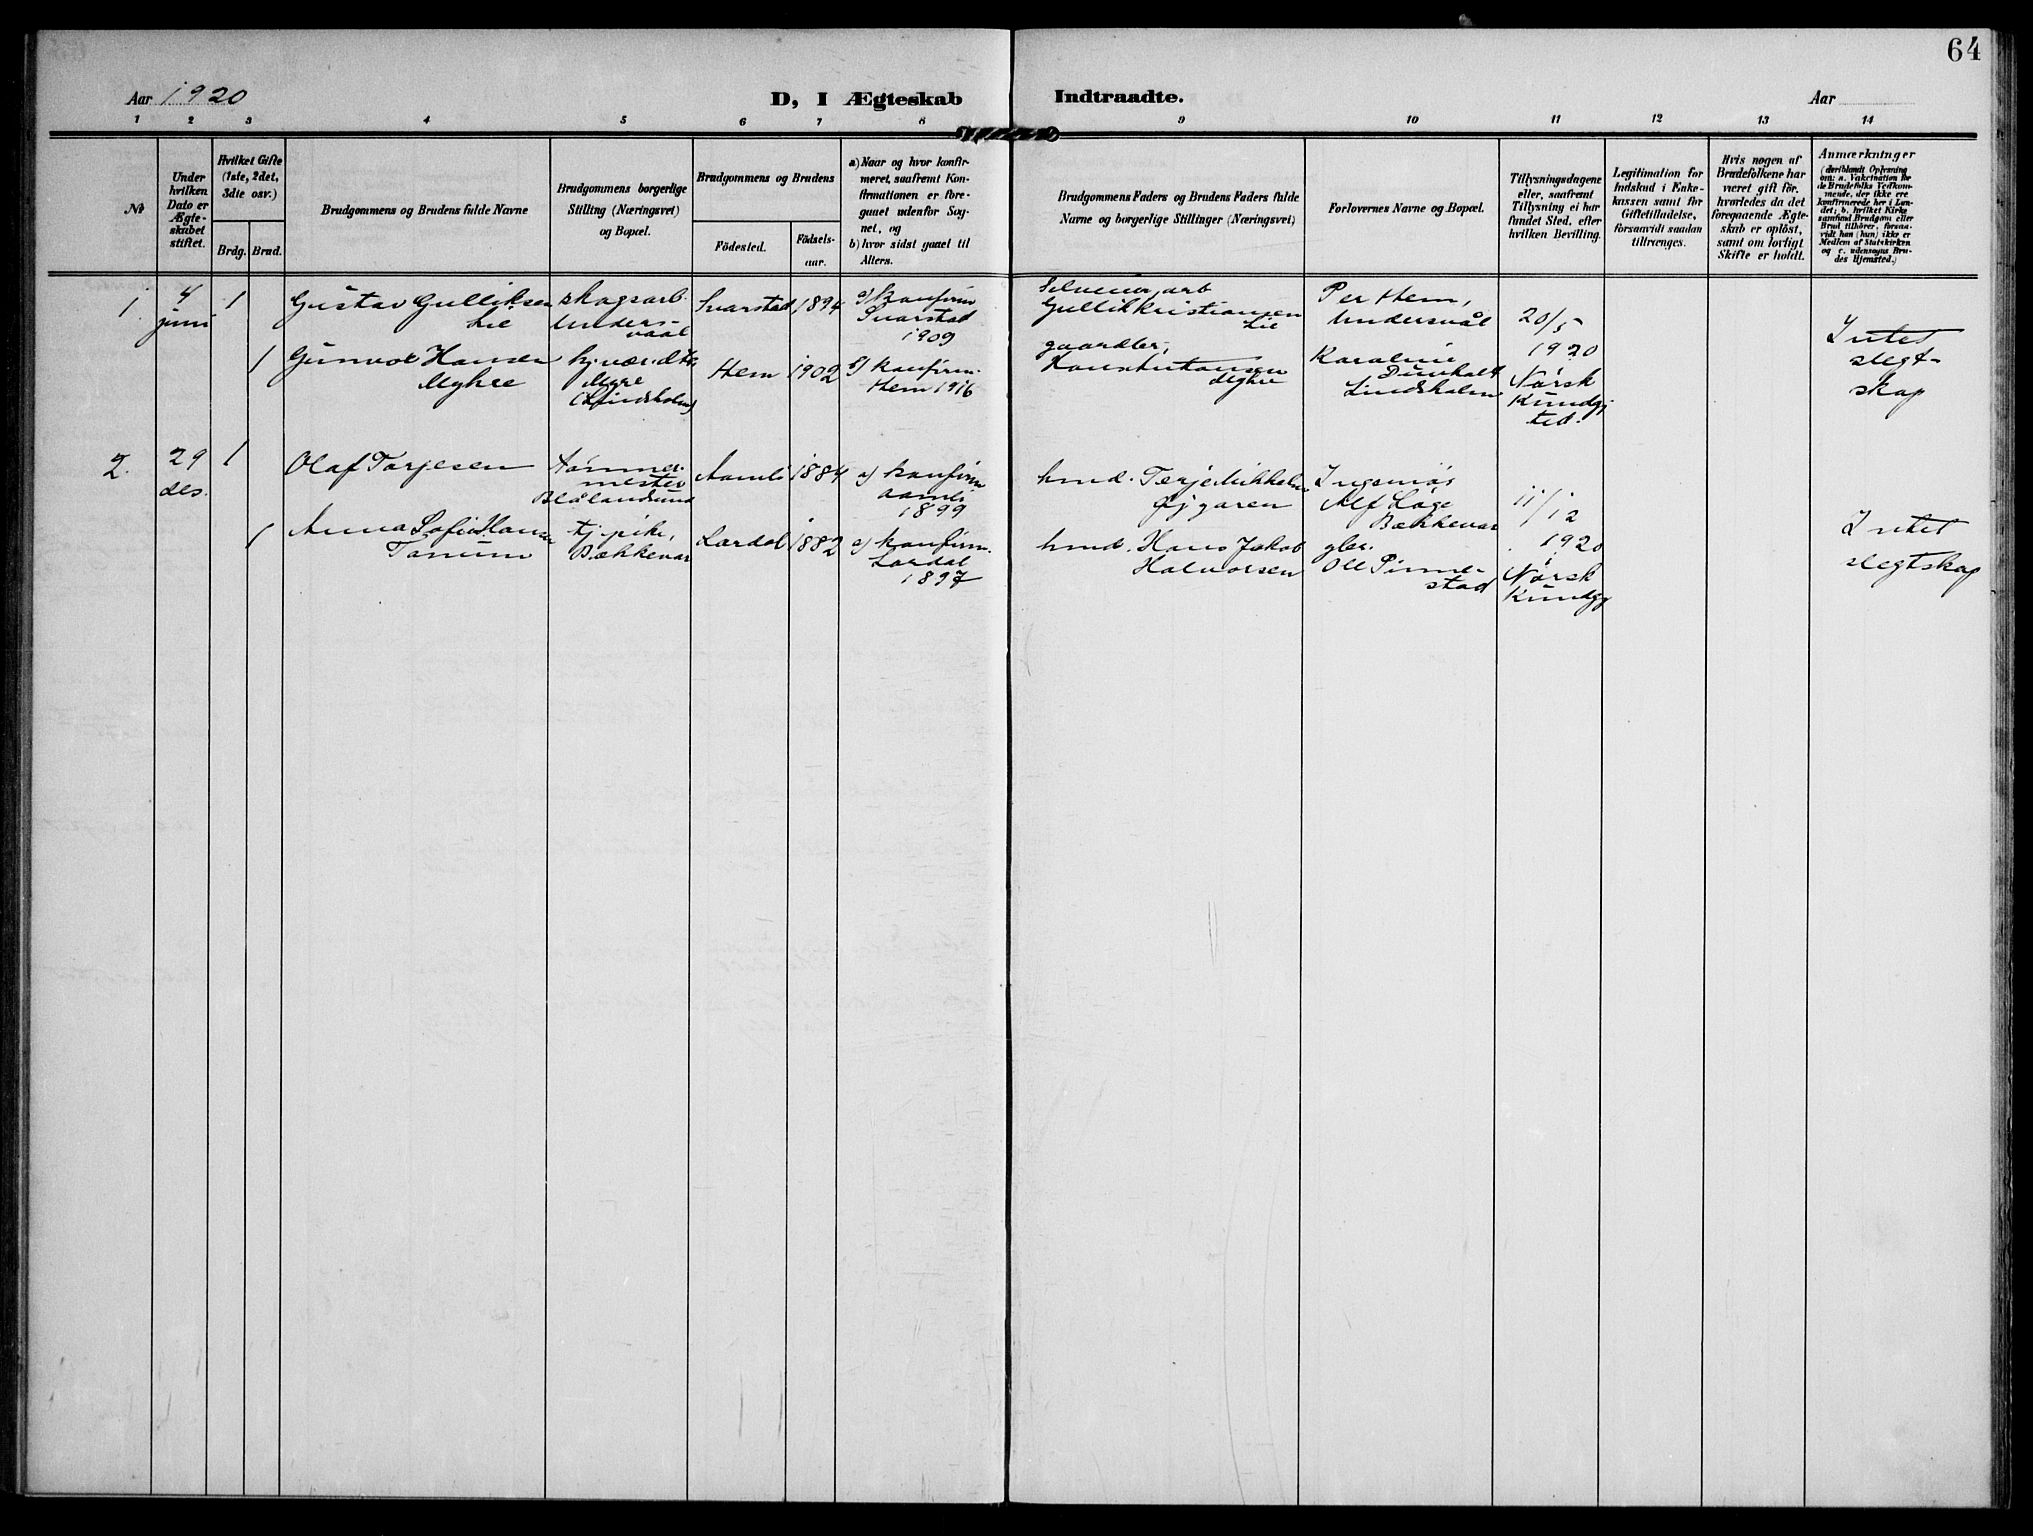 64
Aar 1920
D, I Ægteskab Indtraadte.
Aar
1 2 3 4 5 6 7 8 9 10 11 12 13 14
№
Under hvilken Dato er Ægte-skabet stiftet.
Hvilket Gifte (1ste, 2det, 3die osv.)
Brdg. Brud.
Brudgommens og Brudens fulde Navne
Brudgommens borgerlige Stilling (Næringsvei) og Bopæl.
Brudgommens og Brudens
Födested.
Födsels-aar.
a) Naar og hvor konfir-meret, saafremt Kon-firmationen er fore-gaaet udenfor Sog-net, og
b) hvor sidst gaaet til Alters.
Brudgommens Faders og Brudens Faders fulde Navne og borgerlige Stillinger (Næringsvei)
Forlovernes Navne og Bopæl.
Tillysningsdagene eller, saafremt Tillysning ei har fundet Sted, efter hvilken Bevilling.
Legitimation for Indskud i Enke-kassen samt for Giftetilladelse, forsaavidt saadan tiltrenges.
Hvis nogen af Brudefolkene har været gift för, hvorledes da det foregaaende Ægte-skab er oplöst, samt om lovligt Skifte er holdt.
Anmærkninger (deriblandt Oplysning om: a. Vakcination for de Brudefolks Vedkom-mende, der ikke ere konfirmerede her i Lan-det; b. hvilket Kirke-samfund Brudgom eller Brud tilhörer, forsaa-vidt han (hun) ikke er Medlem af Statskirken og c. udensogns Bru-des Hjemsted.)
1. 4 juni 1
Gustav Gulliksen Lie
skogsarb. Undersvaal
Svarstad 1894
a) konfirm Svarstad 1909
arb Gullik Kristiansen Lie
Per Hem, Undersvål
20/5 1920 Norsk Kundgj. tid.
Intet slegt-skap
1
Gunvor Hansen Myhre
Myre (Lindsholm)
Hem 1902
a) konfirm. Hem 1916
gaardbr. Hans Antonsen Myhre
Karoline Lindsholm
2. 29 des. 1
Olaf Torjesen
tömmer-mester Blålandsund
Aamli 1884
a) konfirm aamli 1899
hmd. Terje Mikkelsen Øygaren
Ingeniør Alf Løge Bækkevar
11/12 1920 Norsk Kundgj
Intet slegtskap
1
Anna Sofie Hansen Tanum
tj. pike, Bækkevar
Lardal 1882
a) konfirm. Lardal 1897
hmd. Hans Jakob Halvorsen
gbr. Ole Pinne-stad